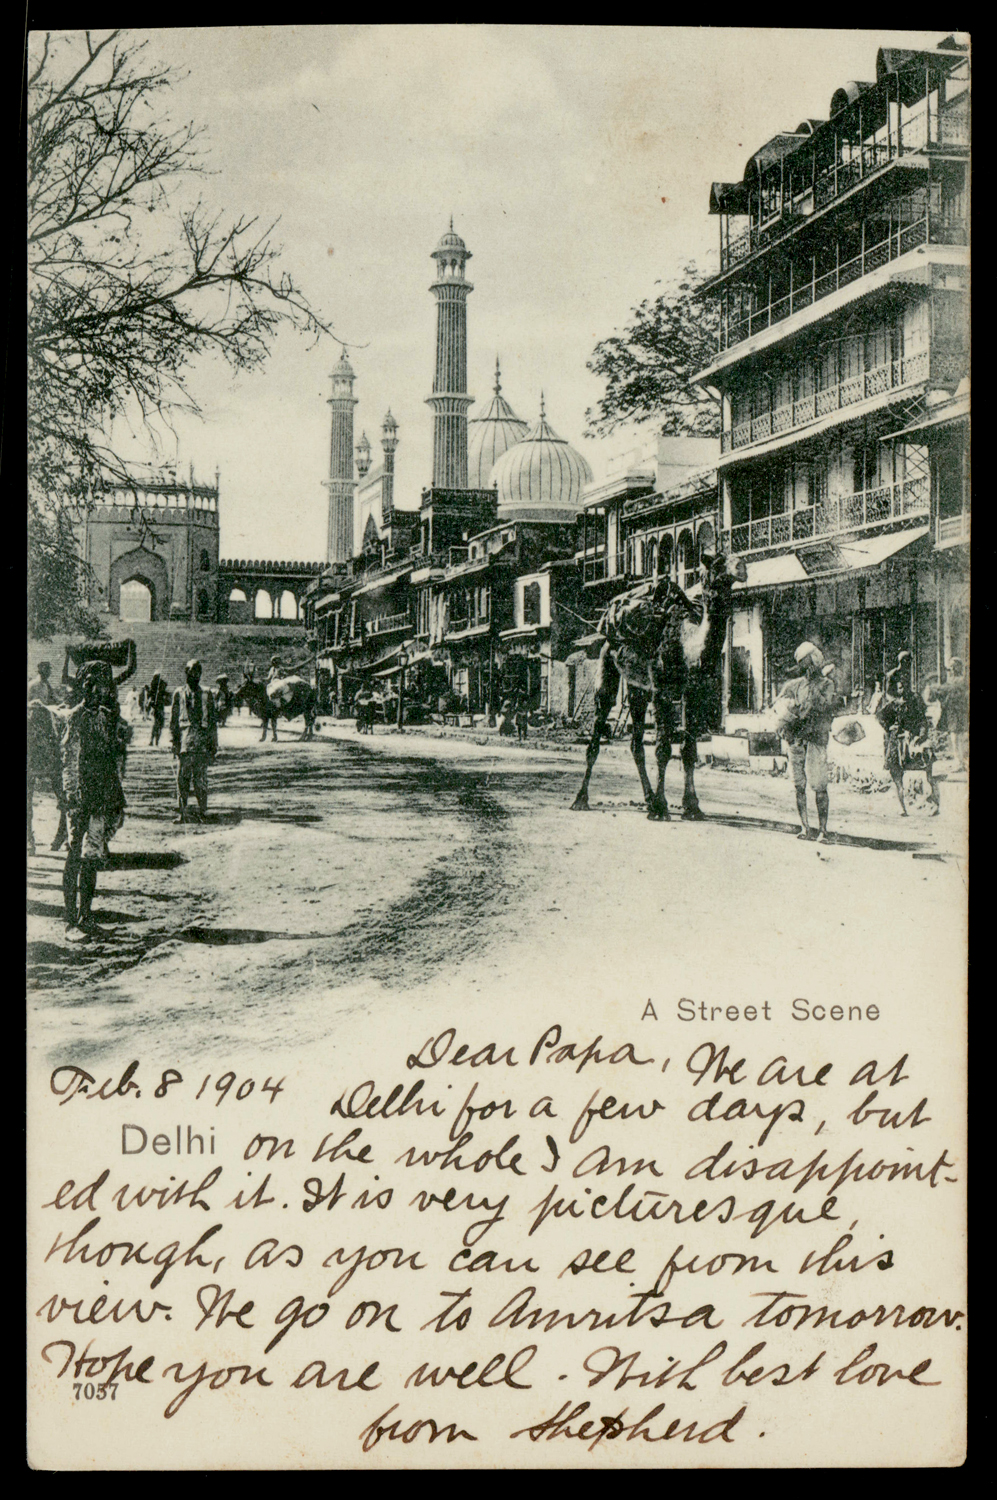 A Street Scene
Dear Papa, We are at
Feb. 8 1904 Delhi for a few days, but
Delhi on the whole I am disappoint-
ed with it. It is very picturesque,
though, as you can see from this
view. We go on to Amritsa tomorrow.
Hope you are well. With best love
7057
from Shepherd.